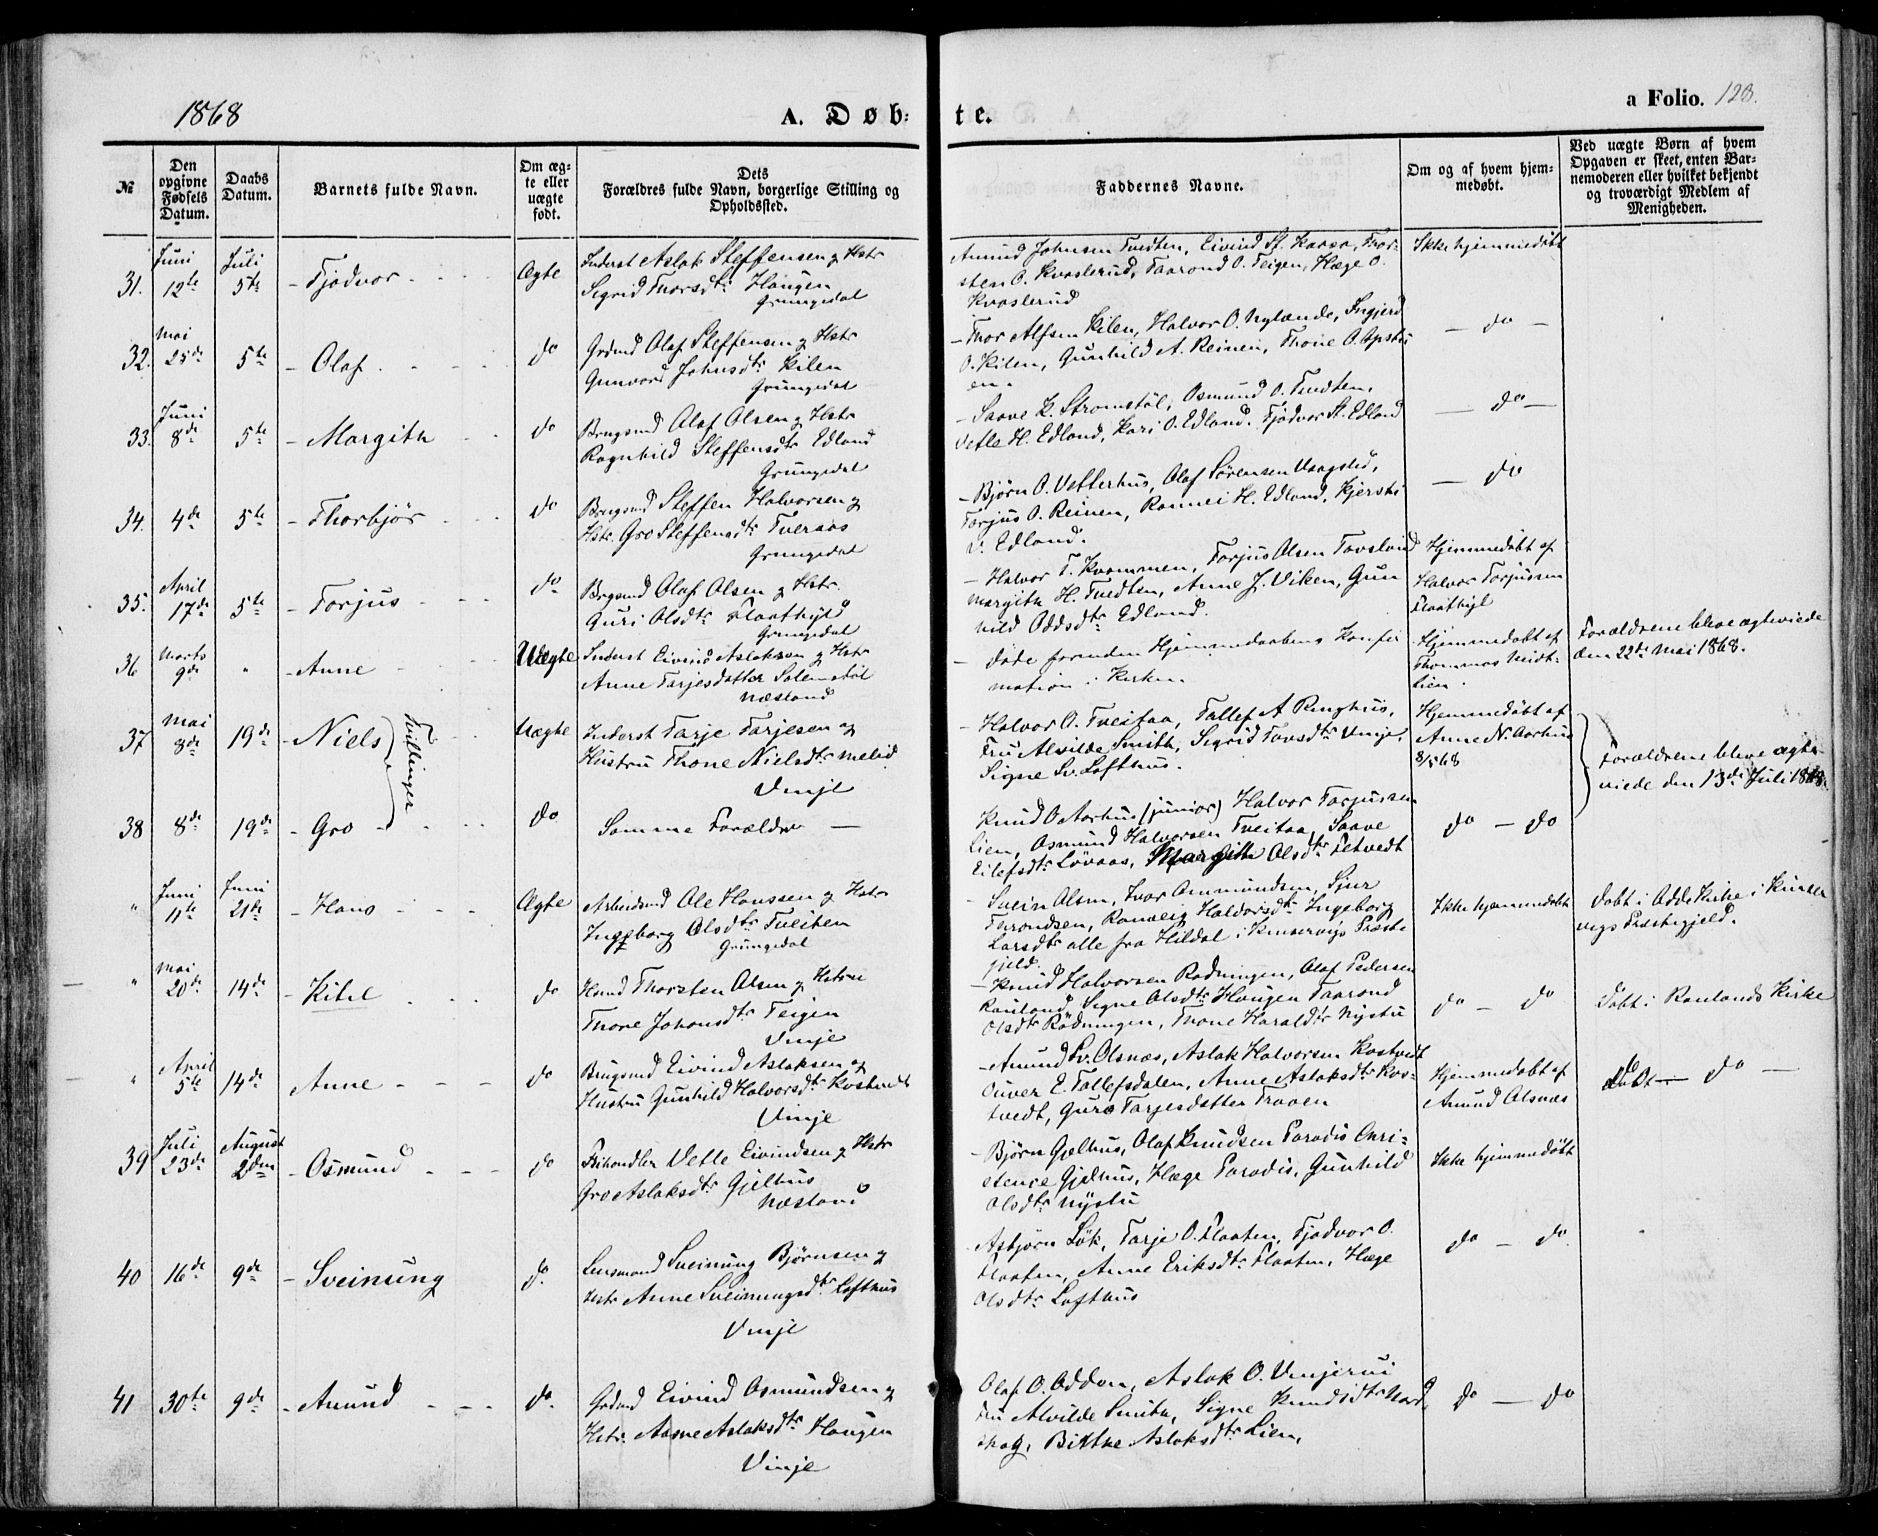 1868
A. Døb-
te.
a Folio. 128.
№
Den opgivne Fødsels Datum.
Daabs Datum.
Barnets fulde Navn.
Om ægte eller uægte født.
Dets Forældres fulde Navn, borgerlige Stilling og Opholdssted.
Faddernes Navne.
Om og af hvem hjemmedøbt.
Ved uægte Børn af hvem Opgaven er skeet, enten Barnemoderen eller hvilket bekjendt og troværdigt Medlem af Menigheden.
31. Juni 12te Juli 5te - Tjodvor Ægte
Inderst Aslak Steffensen og Hstr
Sigrid Thorsdtr Haugen
Grungedal
Amund Johnsen Tvedten, Eivind St. Haase, Thor-
sten O. Kvaslerud, Taarond O. Teigen, Hæge O.
Kvaslerud
Ikke hjemmedøbt
32. Mai 25de 5te - Olaf do
Grdmd Olaf Steffensen og Hstr
Gunvord Johnsdtr Kilen
Grungedal
- Thor Alfsen Kilen, Halvor O. Nylænde, Ingjerd
O. Kilen, Gunhild A. Reinen, Thone O. Opstu
en.
- do -
33. Juni 8de 5te - Margith do
Brugsmd Olaf Olsen og Hstr
Ragnhild Steffensdtr Edland
Grungedal
- Saave K. Strømstøl, Osmund O. Tvedten,
Vetle H. Edland, Kari O. Edland, Tjodvor St. Edland
- do -
34. 4de 5te - Thorbjør do
Brugsmd Steffen Halvorsen og
Hstr. Gro Steffensdtr Tveraas
Grungedal
- Bjørn O. Vetterhus, Olaf Sørensen Vaagsted,
Torjus O. Reinen, Rannei H. Edland, Kjersti
V. Edland.
- do
35. April 17de 5te - Torjus do
Brgsmd Olaf Olsen og Hstr.
Guri Olsdtr Flaathyl
Grungedal
- Halvor T. Kvammen, Torjus Olsen Tovslid
Margith H. Tvedten, Anne J. Viken, Gun
hild Oddsdtr Edland.
Hjemmedøbt af
Halvor Torjussen
Flaathyl
36 Marts 9de " - Anne Uægte
Inderst Eivind Aslaksen og Hstr
Anne Tarjesdatter Solemstøl
Næsland
- døde forinden Hjemmedaabens Konfir
mation i Kirken.
Hjemmedøbt af
Thommas Midt-
lien.
Forældrene bleve ægteviede
den 22de Mai 1868.
37 Mai 8de 19de - Niels Uægte
Tvillinger
Inderst Tarje Tarjesen og
Hustru Thone Nielsdtr Melid
Vinje
- Halvor O. Tveitaa, Tallef A. Ringhus,
Fru Alvilde Smith, Sigrid Tovsdtr Vinje,
Signe Sv. Lofthus.
Hjemmedøbt af
Anne N. Aarhus
8/5 68
Forældrene bleve ægte-
viede den 13de Juli 1868.
38 8de 19de - Gro do
Samme Forældre -
Knud O. Aarhus (junior) Halvor Torjussen
Lien, Osmund Halvorsen Tveitaa, Saave
Eilefsdtr Løvaas, Margith Olsdtr Feltvedt
do - do
" Juni 11te Juni 21de - Hans Ægte
Arbeidsmd Ole Hanssen og Hstr
Ingeborg Olsdtr Tveiten
Grungedal
- Svein Olsen, Ivar Ommundsen, Sjur
Throndsen, Ranveig Haldorsdtr Ingeborg
Larsdtr alle fra Hildal i Kinservigs Præste
gjeld.
Ikke hjemmedøbt
Døbt i Odde Kirke i Kinser
vigs Præstegjeld.
" Mai 20de 14de - Kitel do
Hmd Thorsten Olsen og Hstru
Thore Johansdtr Teigen
Vinje
- Knud Halvorsen Rødningen, Olaf Pedersen
Rauland, Signe Olsdtr Haugen Taarond
Olsdtr Rødningen, Thone Haraldsdtr Nystu
do - do
Døbt i Raulands Kirke
" April 5te 14de Anne do
Brugsmd Eivind Aslaksen og
Hustru Gunhild Halvorsdtr Kostvedt
Vinje
- Amund Sv. Olsnæs, Aslak Halvorsen Kostvedt
Oliver E. Tallefsdalen, Anne Aslaksdtr Kos-
tvedt, Guro Tarjesdatter Traaen
Hjemmedøbt af
Amund Olsnæs
do - do -
39 Juli 23de August 2den - Osmund do
Frihandler Vetle Eivindsen og Hstr
Gro Aslaksdtr Gjelhus
Næsland
- Bjørn Gjelhus, Olaf Knudsen Paradis Chri-
stence Gjelhus, Hæge Paradis, Gunhild
Olsdtr Nystu
Ikke hjemmedøbt
40 16de 9de - Sveinung do.
Lensmand Sveinung Bjørnsen og
Hstr Anne Sveinungsdtr Lofthus
Vinje
Asbjørn Løk, Tarje O. Flaaten, Tjodvor O.
Flaaten, Anne Eriksdtr Flaaten, Hæge
Olsdtr Lofthus
do - do.
41 30te 9de - Amund do.
Grdmd Eivind Osmundsen og
Hstr. Aasne Aslaksdtr Haugen
Vinje
Olaf O. Odden, Aslak O. Vinjerui
Fru Alvilde Smith, Signe Knudsdtr Nord
skog, Birthe Aslaksdtr Lien,
do - do